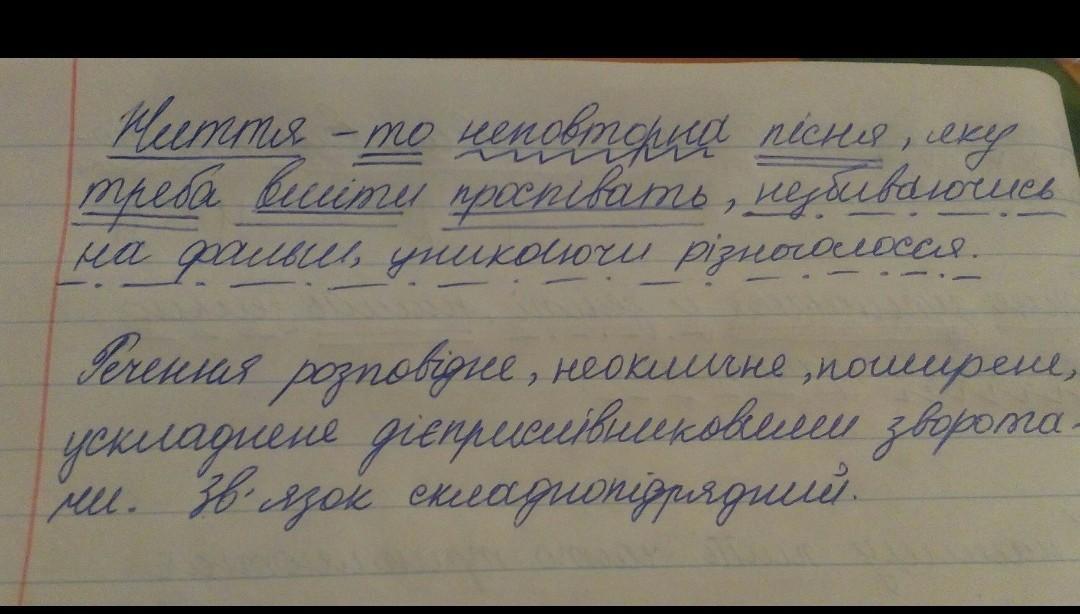 Життя – то неповторна пісня, яку
треба вміти проспівать, незбиваючись
на фальш, уникаючи різноголосся.
Речення розповідне, неокличне, поширене,
ускладнене дієприслівниковими зворота-
ми. Зв'язок складнопідрядний.